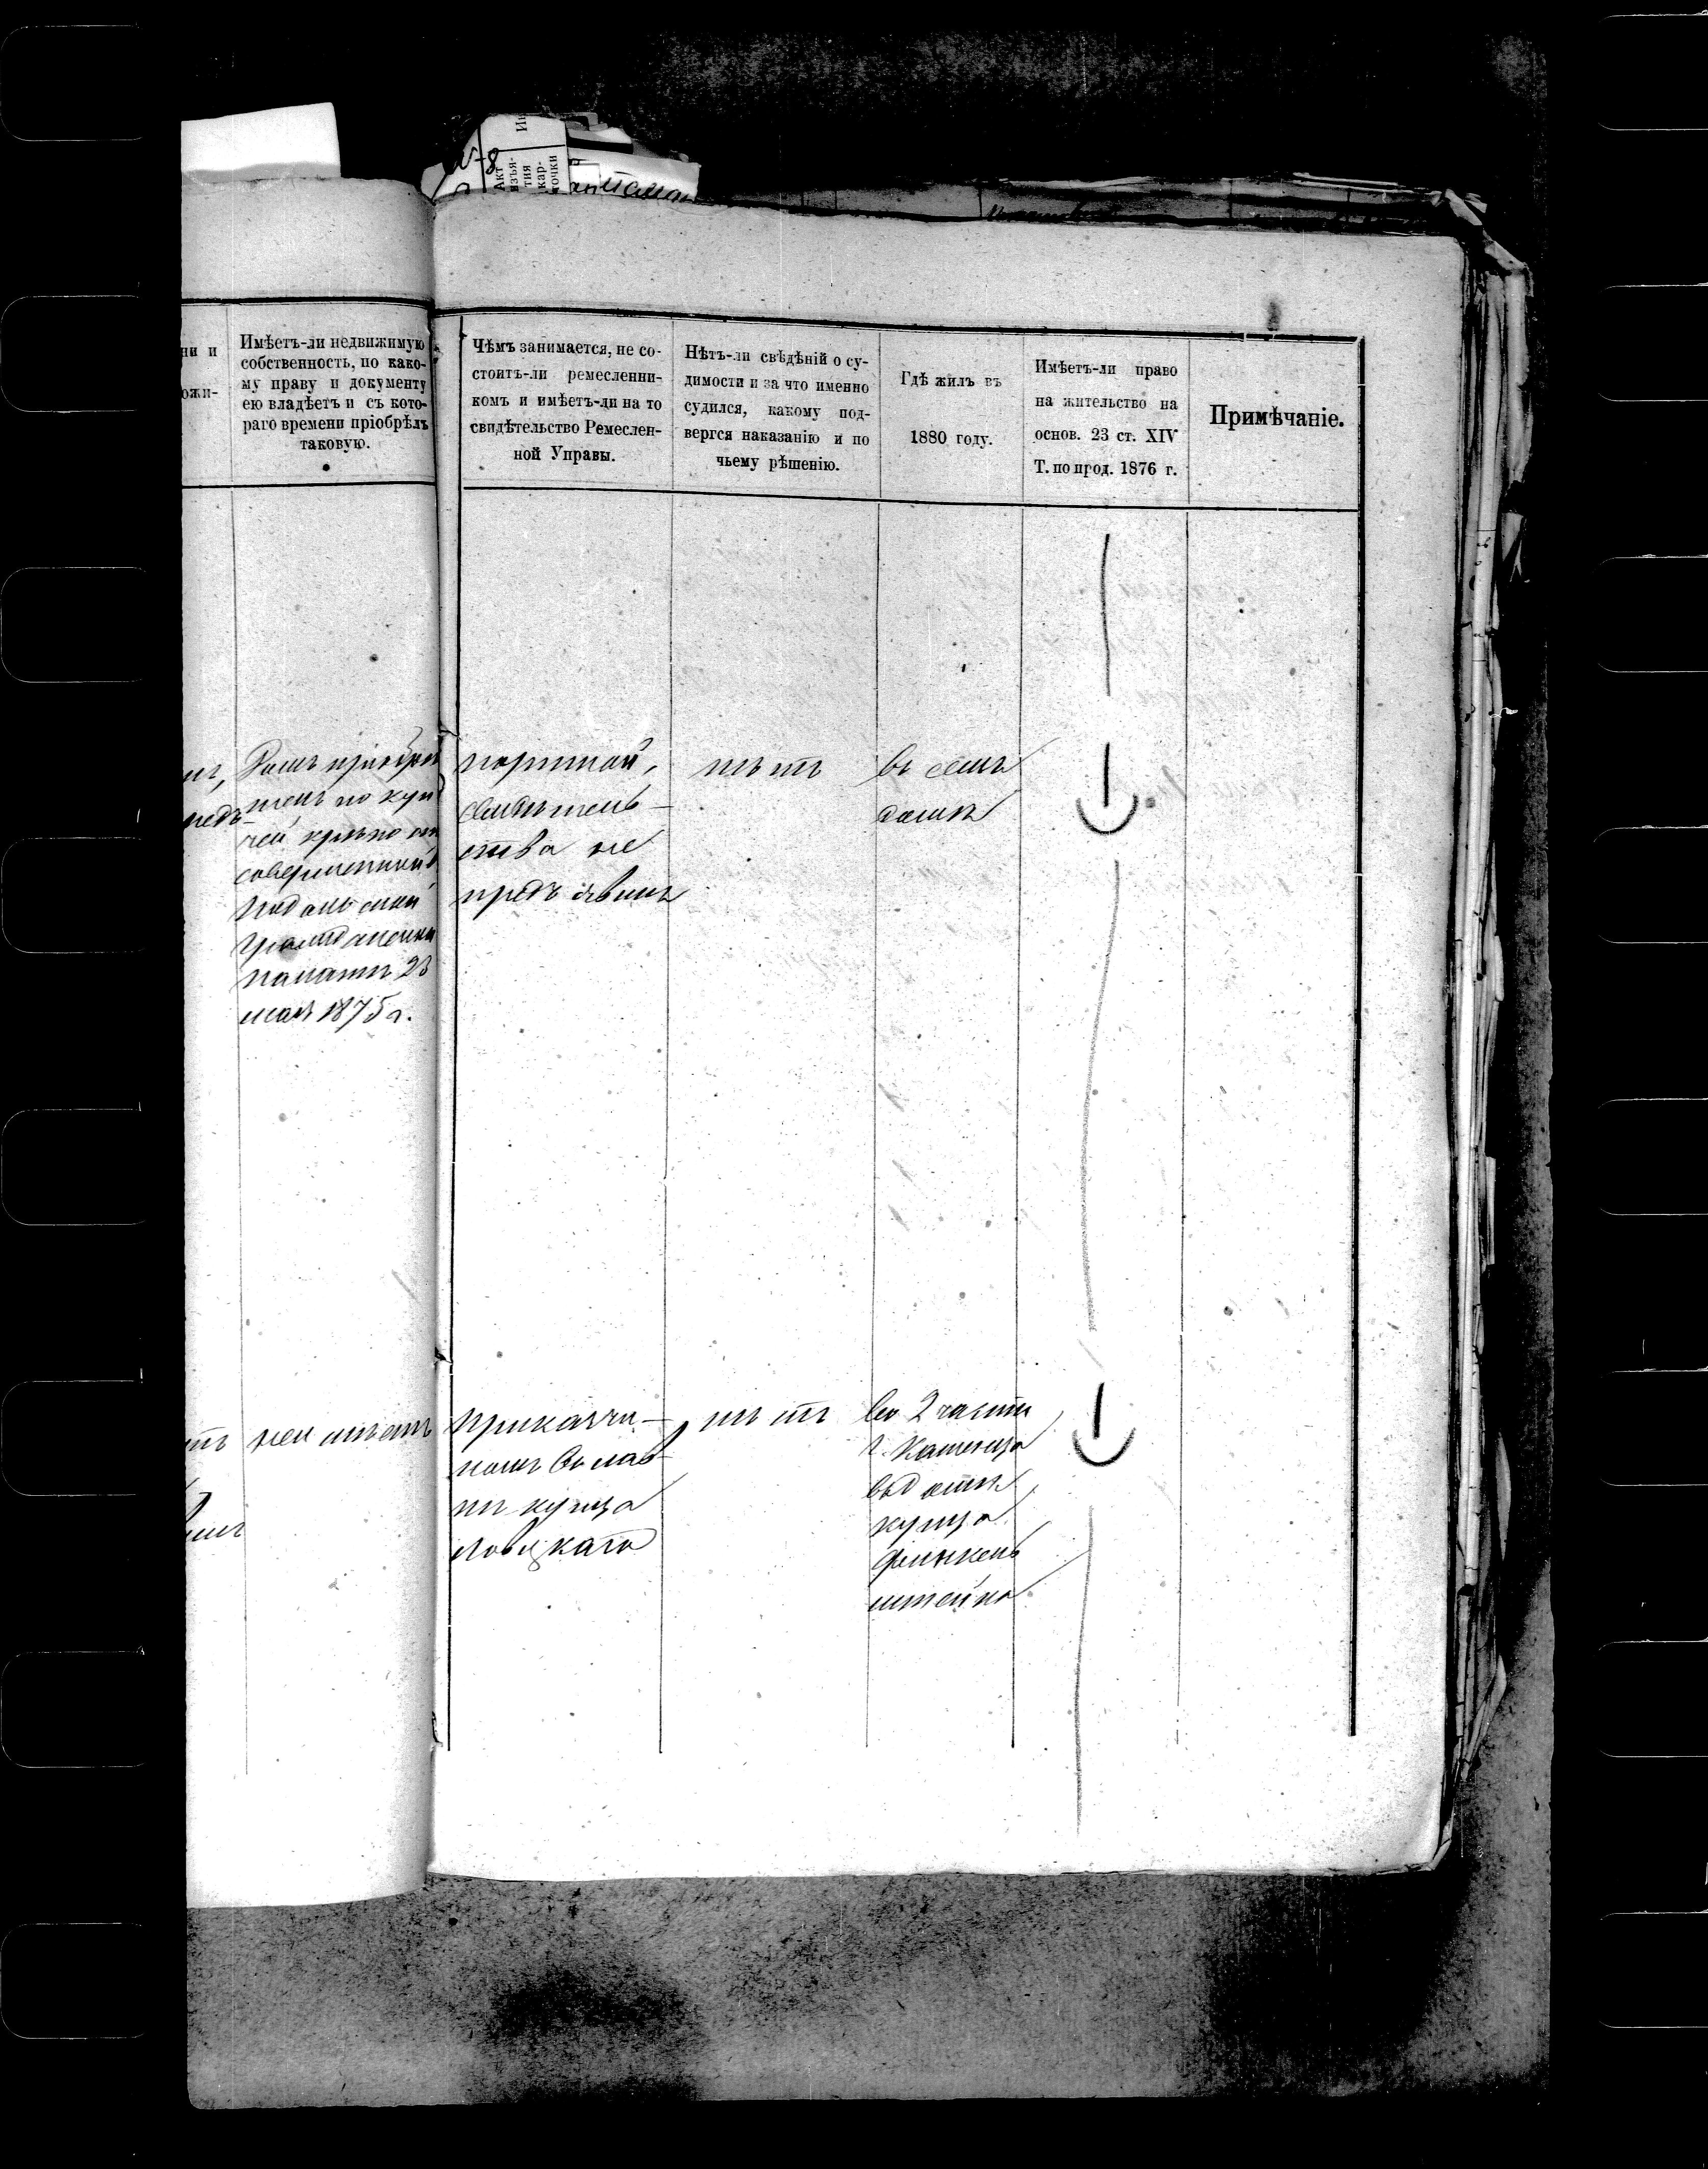 № 8
Акт
изъя-
тия
кар-
точки
ни и
ожи-
Имѣетъ-ли недвижимую
собственность, по како-
му праву и документу
ею владѣетъ и съ кото-
раго времени пріобрѣлъ
таковую.
Чѣмъ занимается, не со-
стоитъ-ли ремесленни-
комъ и имѣетъ-ли на то
свидѣтельство Ремеслен-
ной Управы.
Нѣтъ-ли свѣдѣній о су-
димости и за что именно
судился, какому под-
вергся наказанію и по
чьему рѣшенію.
Гдѣ жилъ въ
1880 году.
Имѣетъ-ли право
на жительство на
основ. 23 ст. XIV
Т. по прод. 1876 г.
Примѣчаніе.
Домъ пріобрѣ
тенъ по куп
чей крѣпости
совершенной
Подольской
Гражданской
палатѣ 23
мая 1875 г.
портной,
свидѣтель-
ства не
предъявилъ
нѣтъ
въ семъ
домѣ
неимѣетъ
Прикащи-
комъ въ лав-
кѣ купца
Ловецкаго
нѣтъ
во 2 части
г. Каменца
въ домѣ
купца
Финкель
штейна